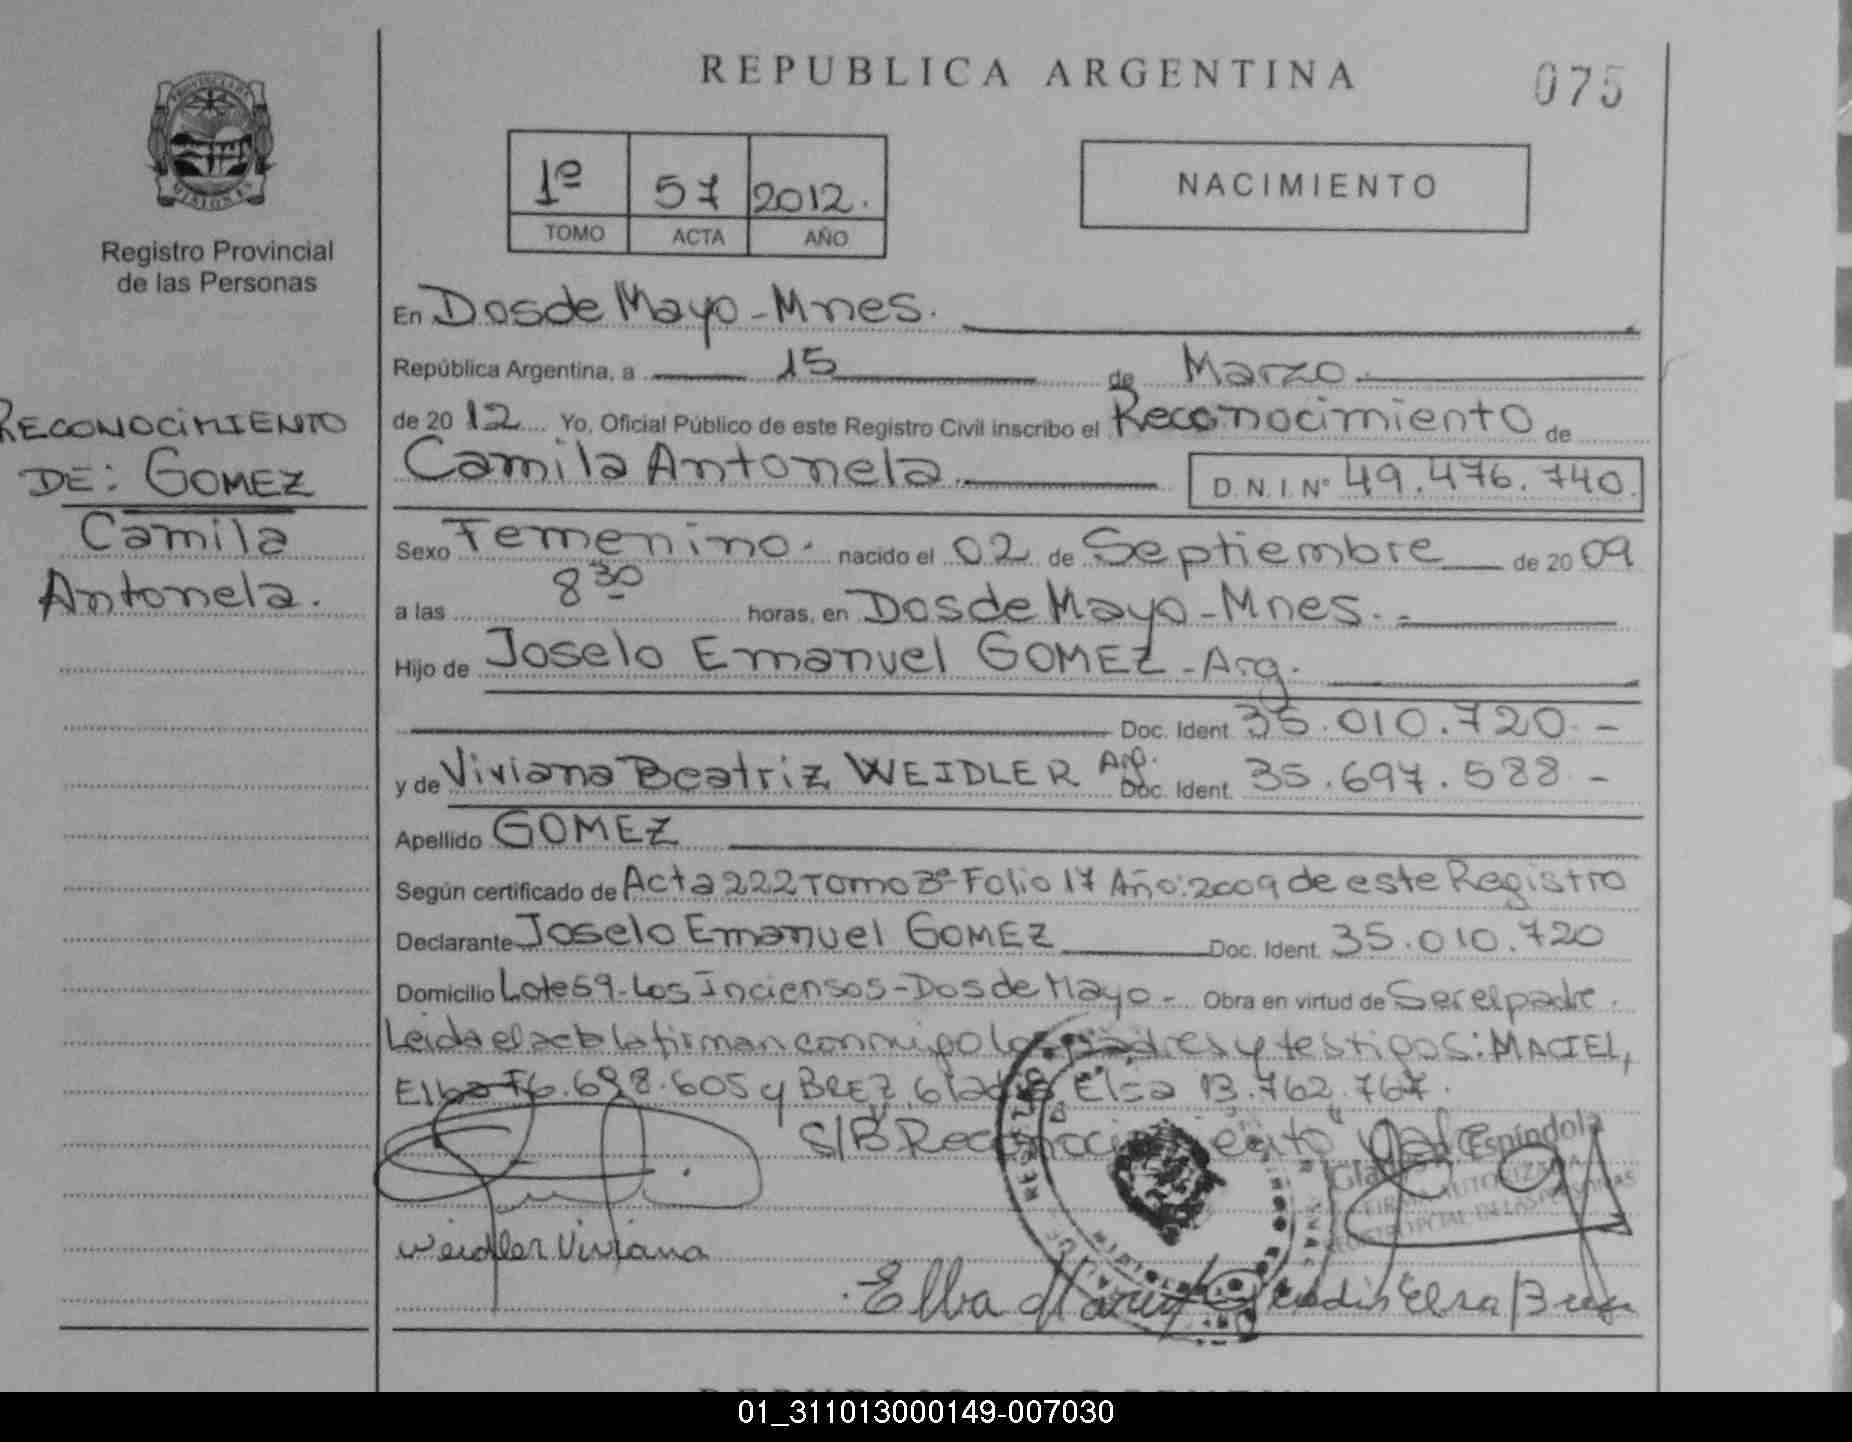 REPUBLICA ARGENTINA
075
Registro Provincial
de las Personas
1º 57 2012.
TOMO ACTA AÑO
NACIMIENTO
RECONOCIMIENTO
DE: GOMEZ
Camila
Antonela.
En Dos de Mayo - Mnes.
República Argentina, a 15 de Marzo.
de 2012 Yo, Oficial Público de este Registro Civil inscribo el Reconocimiento de
Camila Antonela. D.N.I. Nº 49.476.740.
Sexo Femenino. nacido el 02 de Septiembre de 2009
a las 8 30 horas, en Dos de Mayo - Mnes.
Hijo de Joselo Emanuel GOMEZ - Arg.
Doc. Ident. 35.010.720.-
y de Viviana Beatriz WEIDLER Arg. Doc. Ident. 35.697.588.-
Apellido GOMEZ
Según certificado de Acta 222 Tomo 3º Folio 17 Año: 2009 de este Registro
Declarante Joselo Emanuel GOMEZ Doc. Ident. 35.010.720
Domicilio Lote 59 - Los Inciensos - Dos de Mayo - Obra en virtud de Ser el padre.
Leida el acta la firman conmigo los padres y testigos: MACIEL,
Elba 16.698.605 y BREZ, Gladis Elsa 13.762.767.
S/B "Reconocimiento" Vale
Espíndola
FIRMA AUTORIZADA
Weidler Viviana
Elba Gladis Elsa Brez
01_311013000149-007030